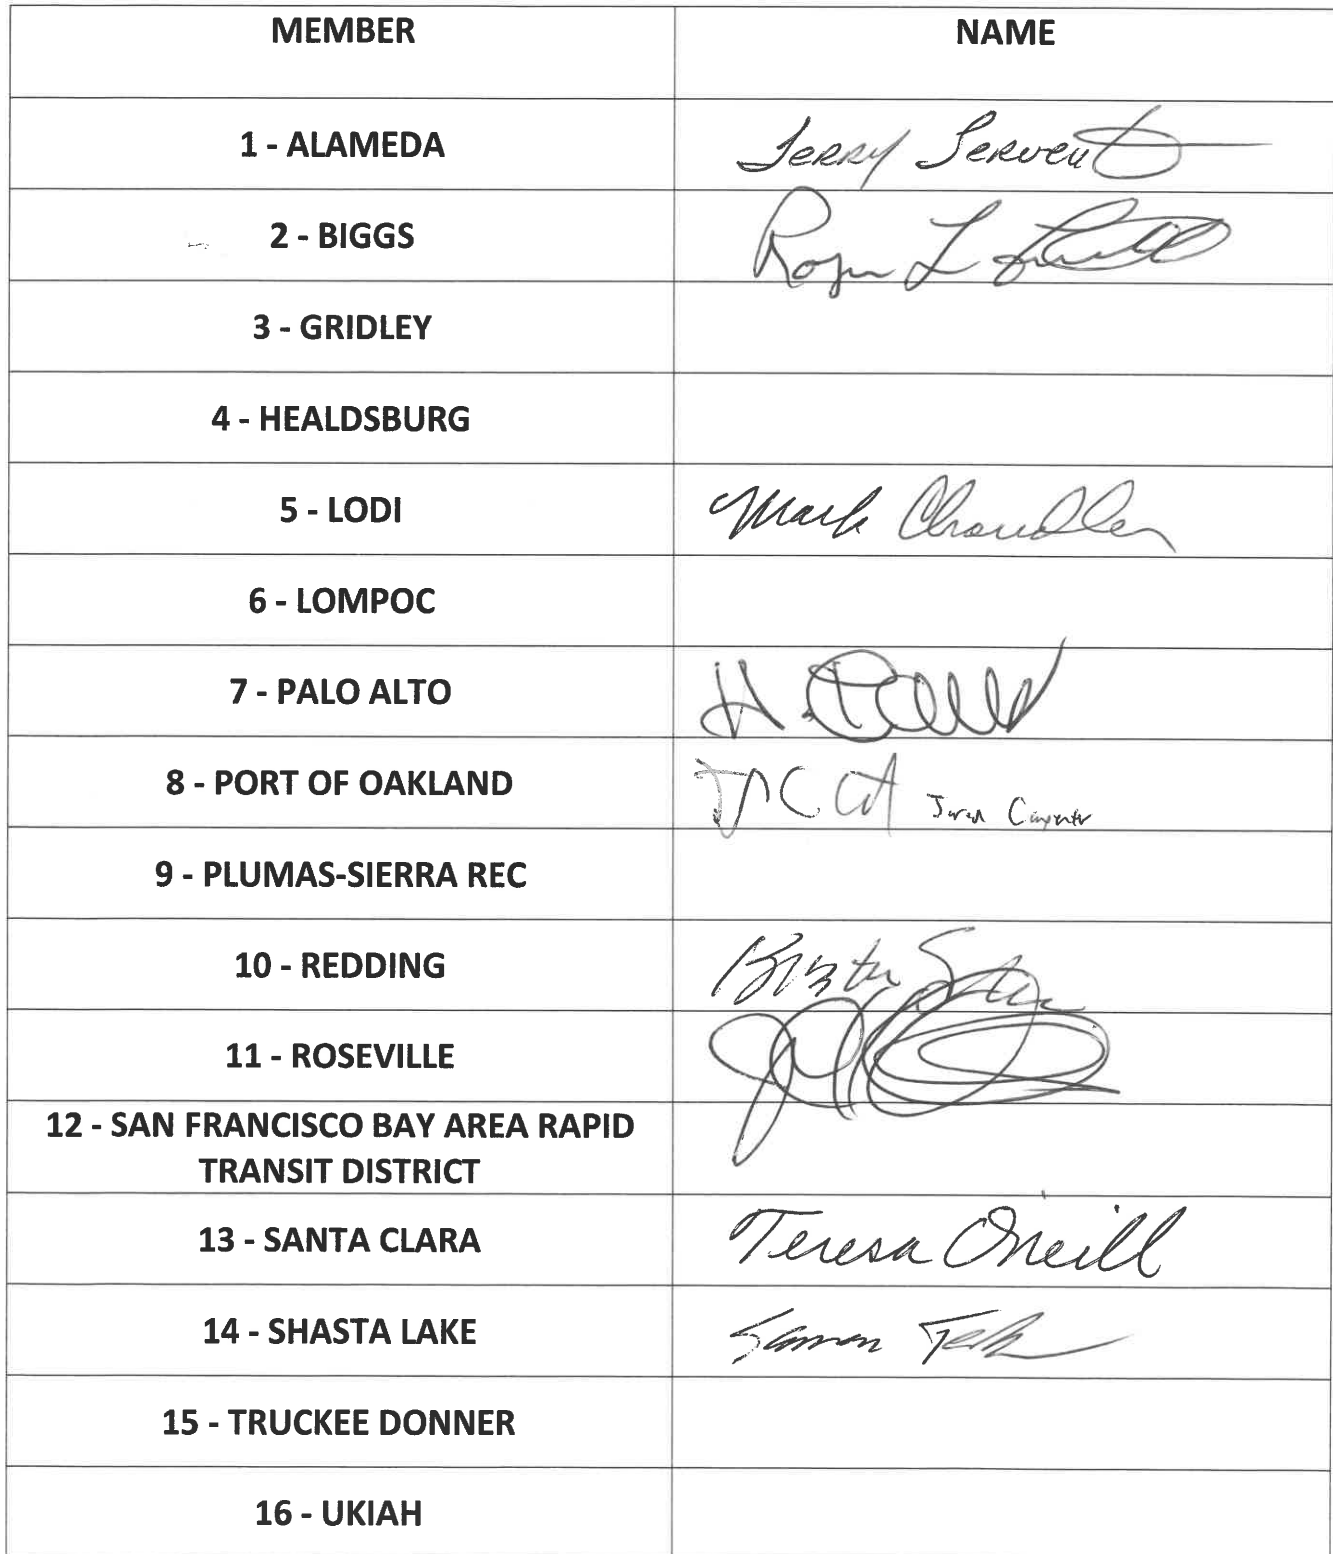 MEMBER NAME
1 - ALAMEDA Jerry Servent
2 - BIGGS Roger L
3 - GRIDLEY
4 - HEALDSBURG
5 - LODI Mark Chandler
6 - LOMPOC
7 - PALO ALTO H.
8 - PORT OF OAKLAND Jared Carpenter
9 - PLUMAS-SIERRA REC
10 - REDDING
11 - ROSEVILLE
12 - SAN FRANCISCO BAY AREA RAPID
TRANSIT DISTRICT
13 - SANTA CLARA Teresa O'Neill
14 - SHASTA LAKE
15 - TRUCKEE DONNER
16 - UKIAH